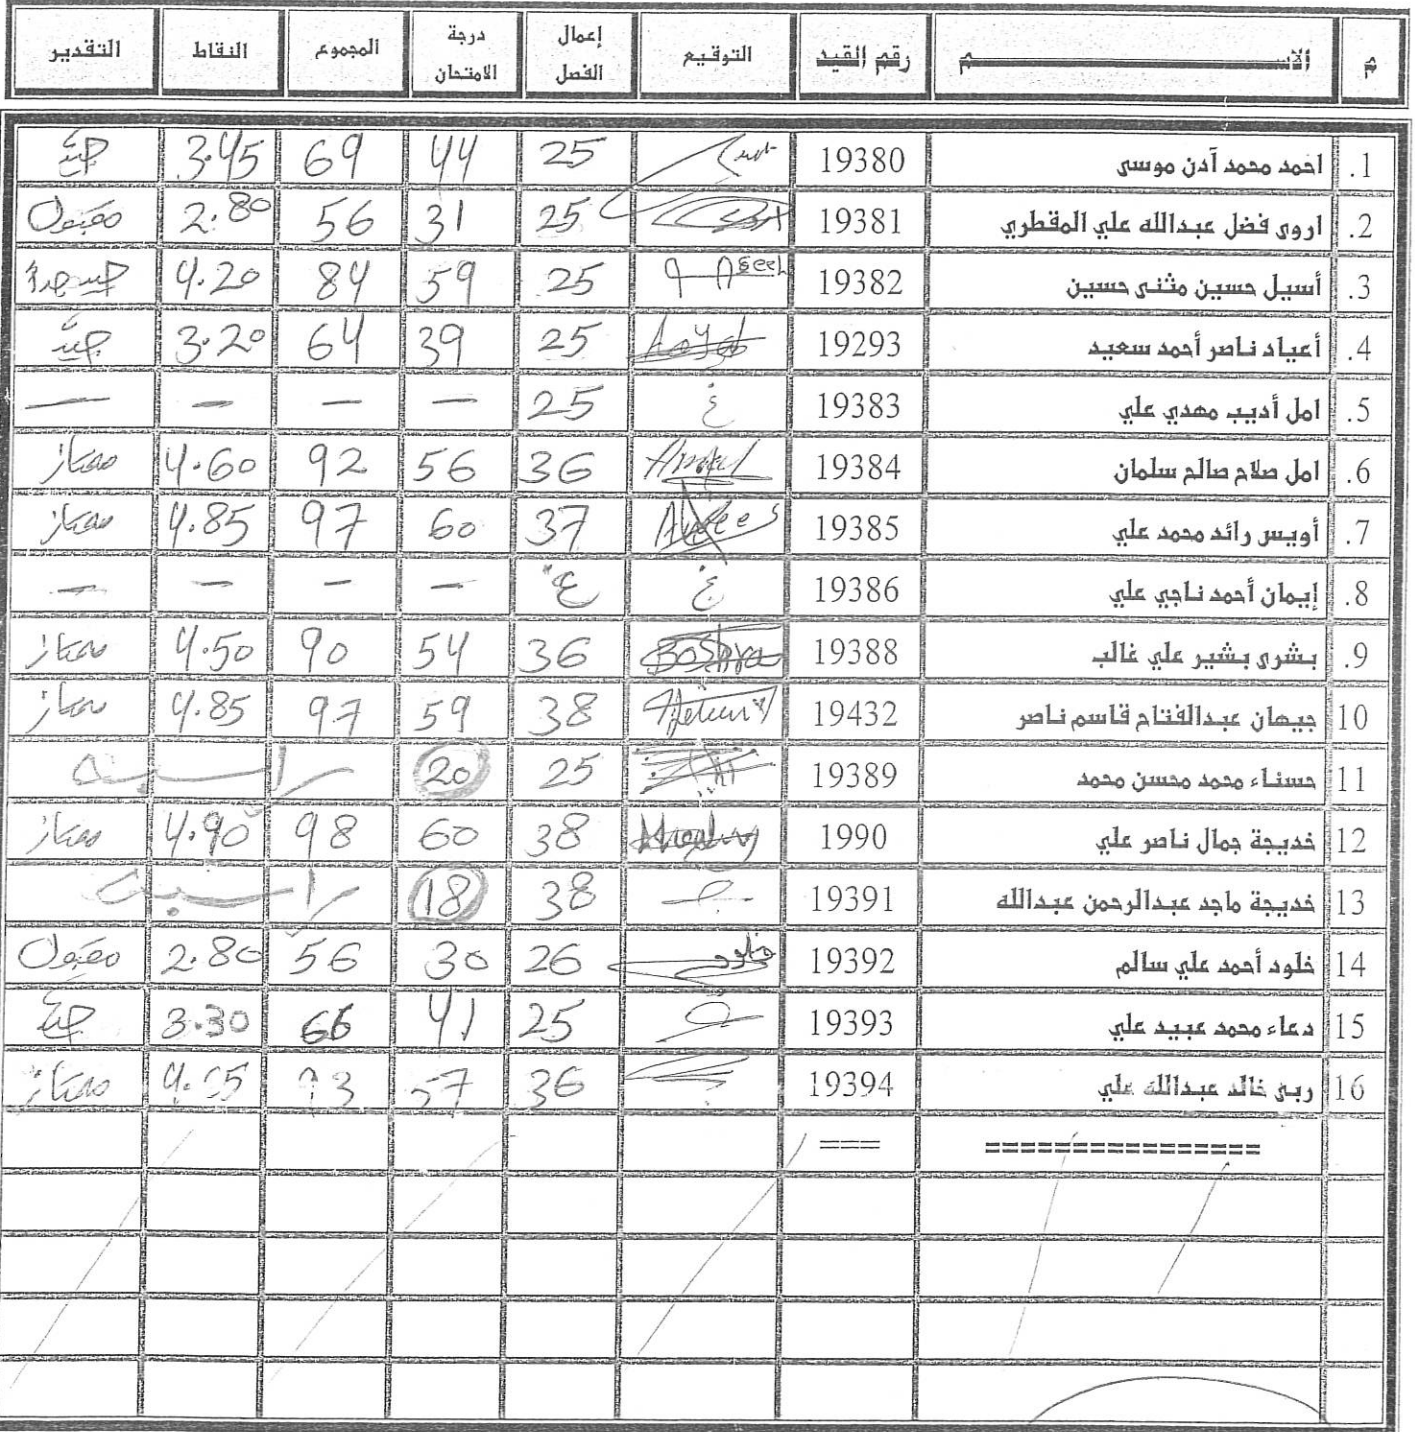 م الاســـــــم رقم القيد التوقيع إعمال الفصل درجة الامتحان المجموع النقاط التقدير
1. احمد محمد آدن موسى 19380 25 44 69 3.45 جيد
2. اروى فضل عبدالله علي المقطري 19381 25 31 56 2.80 مقبول
3. أسيل حسين مثنى حسين 19382 Aseel 25 59 84 4.20 جيد جداً
4. أعياد ناصر أحمد سعيد 19293 25 39 64 3.20 جيد
5. امل أديب مهدي علي 19383 غ 25 — — — —
6. امل صلاح صالح سلمان 19384 Amal 36 56 92 4.60 ممتاز
7. أويس رائد محمد علي 19385 37 60 97 4.85 ممتاز
8. إيمان أحمد ناجي علي 19386 غ غ — — — —
9. بشرى بشير علي غالب 19388 Boshra 36 54 90 4.50 ممتاز
10 جيهان عبدالفتاح قاسم ناصر 19432 38 59 97 4.85 ممتاز
11 حسناء محمد محسن محمد 19389 25 20 راسبة
12 خديجة جمال ناصر علي 1990 38 60 98 4.90 ممتاز
13 خديجة ماجد عبدالرحمن عبدالله 19391 38 18 راسبة
14 خلود أحمد علي سالم 19392 خلود 26 30 56 2.80 مقبول
15 دعاء محمد عبيد علي 19393 25 41 66 3.30 جيد
16 ربى خالد عبدالله علي 19394 36 57 93 ممتاز
================ ===